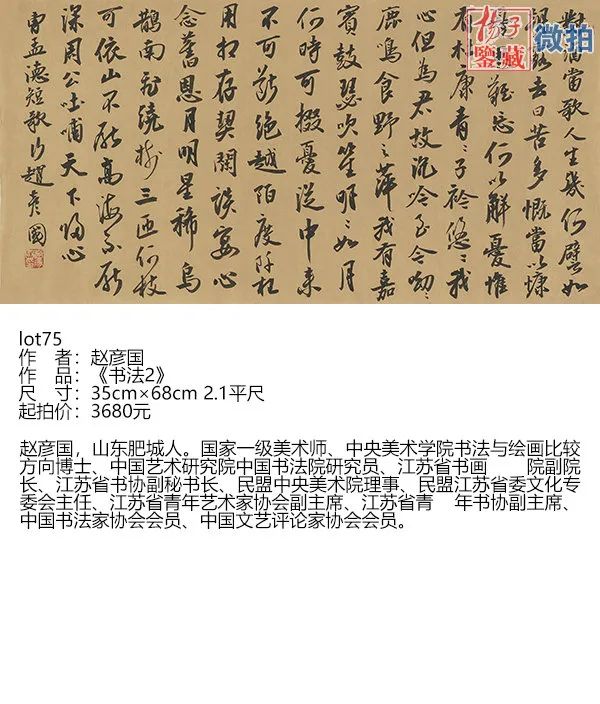 對酒當歌人生幾何譬如
朝露去日苦多慨當以慷
難忘何以解憂惟
有杜康青〻子衿悠〻我
心但為君故沉吟至今呦〻
鹿鳴食野之苹我有嘉
賓鼓瑟吹笙明〻如月
何時可掇憂從中來
不可斷絕越陌度阡枉
用相存契闊談宴心
念舊恩月明星稀烏
鵲南飛繞樹三匝何枝
可依山不厭高海不厭
深周公吐哺天下歸心
曹孟德短歌行趙彥國
扬子
鑒藏
微拍
lot75
作 者：赵彦国
作 品：《书法2》
尺 寸：35cm×68cm 2.1平尺
起拍价：3680元
赵彦国，山东肥城人。国家一级美术师、中央美术学院书法与绘画比较
方向博士、中国艺术研究院中国书法院研究员、江苏省书画 院副院
长、江苏省书协副秘书长、民盟中央美术院理事、民盟江苏省委文化专
委会主任、江苏省青年艺术家协会副主席、江苏省青 年书协副主席、
中国书法家协会会员、中国文艺评论家协会会员。